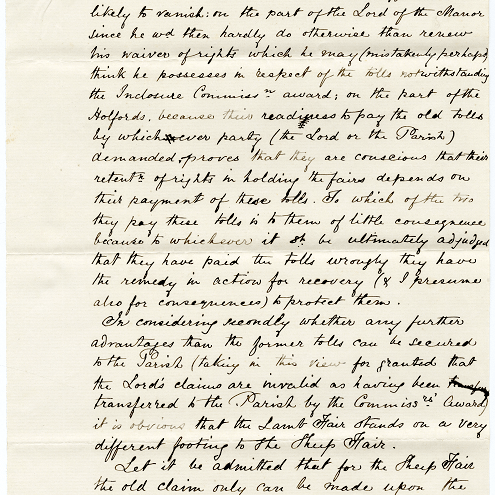 likely to vanish: on the part of the Lord of the Manor
since he wd then hardly do otherwise than renew
his waiver of rights which he may (mistakenly perhaps)
think he possesses in respect of the tolls notwithstanding
the Inclosure Commissn award; on the part of the
Holfords, because their readiness to pay the old tolls
by whichever party (the Lord or the Parish)
demanded, proves that they are conscious that their
retentn of rights in holding the fairs depends on
their payment of these tolls. To which of the two
they pay these tolls is to them of little consequence
because to whichever it sh. be ultimately adjudged
that they have paid the tolls wrongly they have
the remedy in action for recovery (& I presume
also for consequences) to protect them.
In considering secondly whether any further
advantages than the former tolls can be secured
to the Parish (taking in this view for granted that
the Lord's claims are invalid as having been
transferred to the Parish by the Commissrs' Award)
it is obvious that the Lamb Fair stands on a very
different footing to the Sheep Fair.
Let it be admitted that for the Sheep Fair
the old claim only can be made upon the